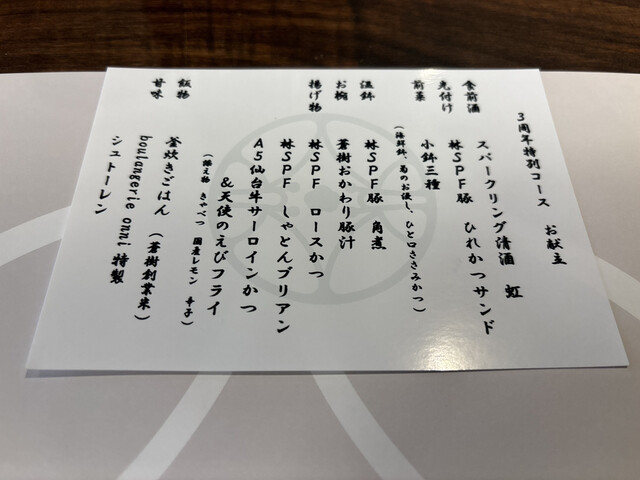 3周年特別コース　お献立
食前酒　スパークリング清酒　虹
先付け　林SPF豚　ひれかつサンド
前菜　小鉢三種
（海鮮鉢、菊のお浸し、ひと口ささみかつ）
温鉢　林SPF豚　角煮
お椀　蒼樹おかわり豚汁
揚げ物　林SPF　ロースかつ
林SPF　しゃとんブリアン
A5仙台牛サーロインかつ
&天使のえびフライ
（添え物　きゃべつ　国産レモン　辛子）
飯物　釜炊きごはん　（蒼樹創業米）
甘味　boulangerie onni 特製
シュトーレン